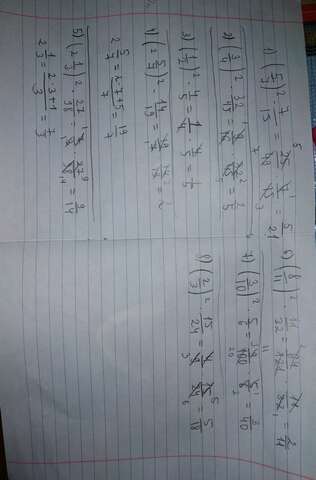 1) (5/7)² · 7/15 = 25/49 · 7/15 = 5/21
2) (3/4)² · 32/45 = 9/16 · 32/45 = 2/5
3) (1/2)² · 4/5 = 1/4 · 4/5 = 1/5
4) (2 5/7)² · 14/19 =
2 5/7 = 2·7+5/7 = 19/7
5) (2 1/3)² · 27/38 = 9/14
2 1/3 = 2·3+1/3 = 7/3
6) (8/11)² · 11/32 = 64/121 · 11/32 = 2/11
7) (3/10)² · 5/6 = 9/100 · 5/6 = 3/40
8) (2/3)² · 15/24 = 4/9 · 15/24 = 5/18